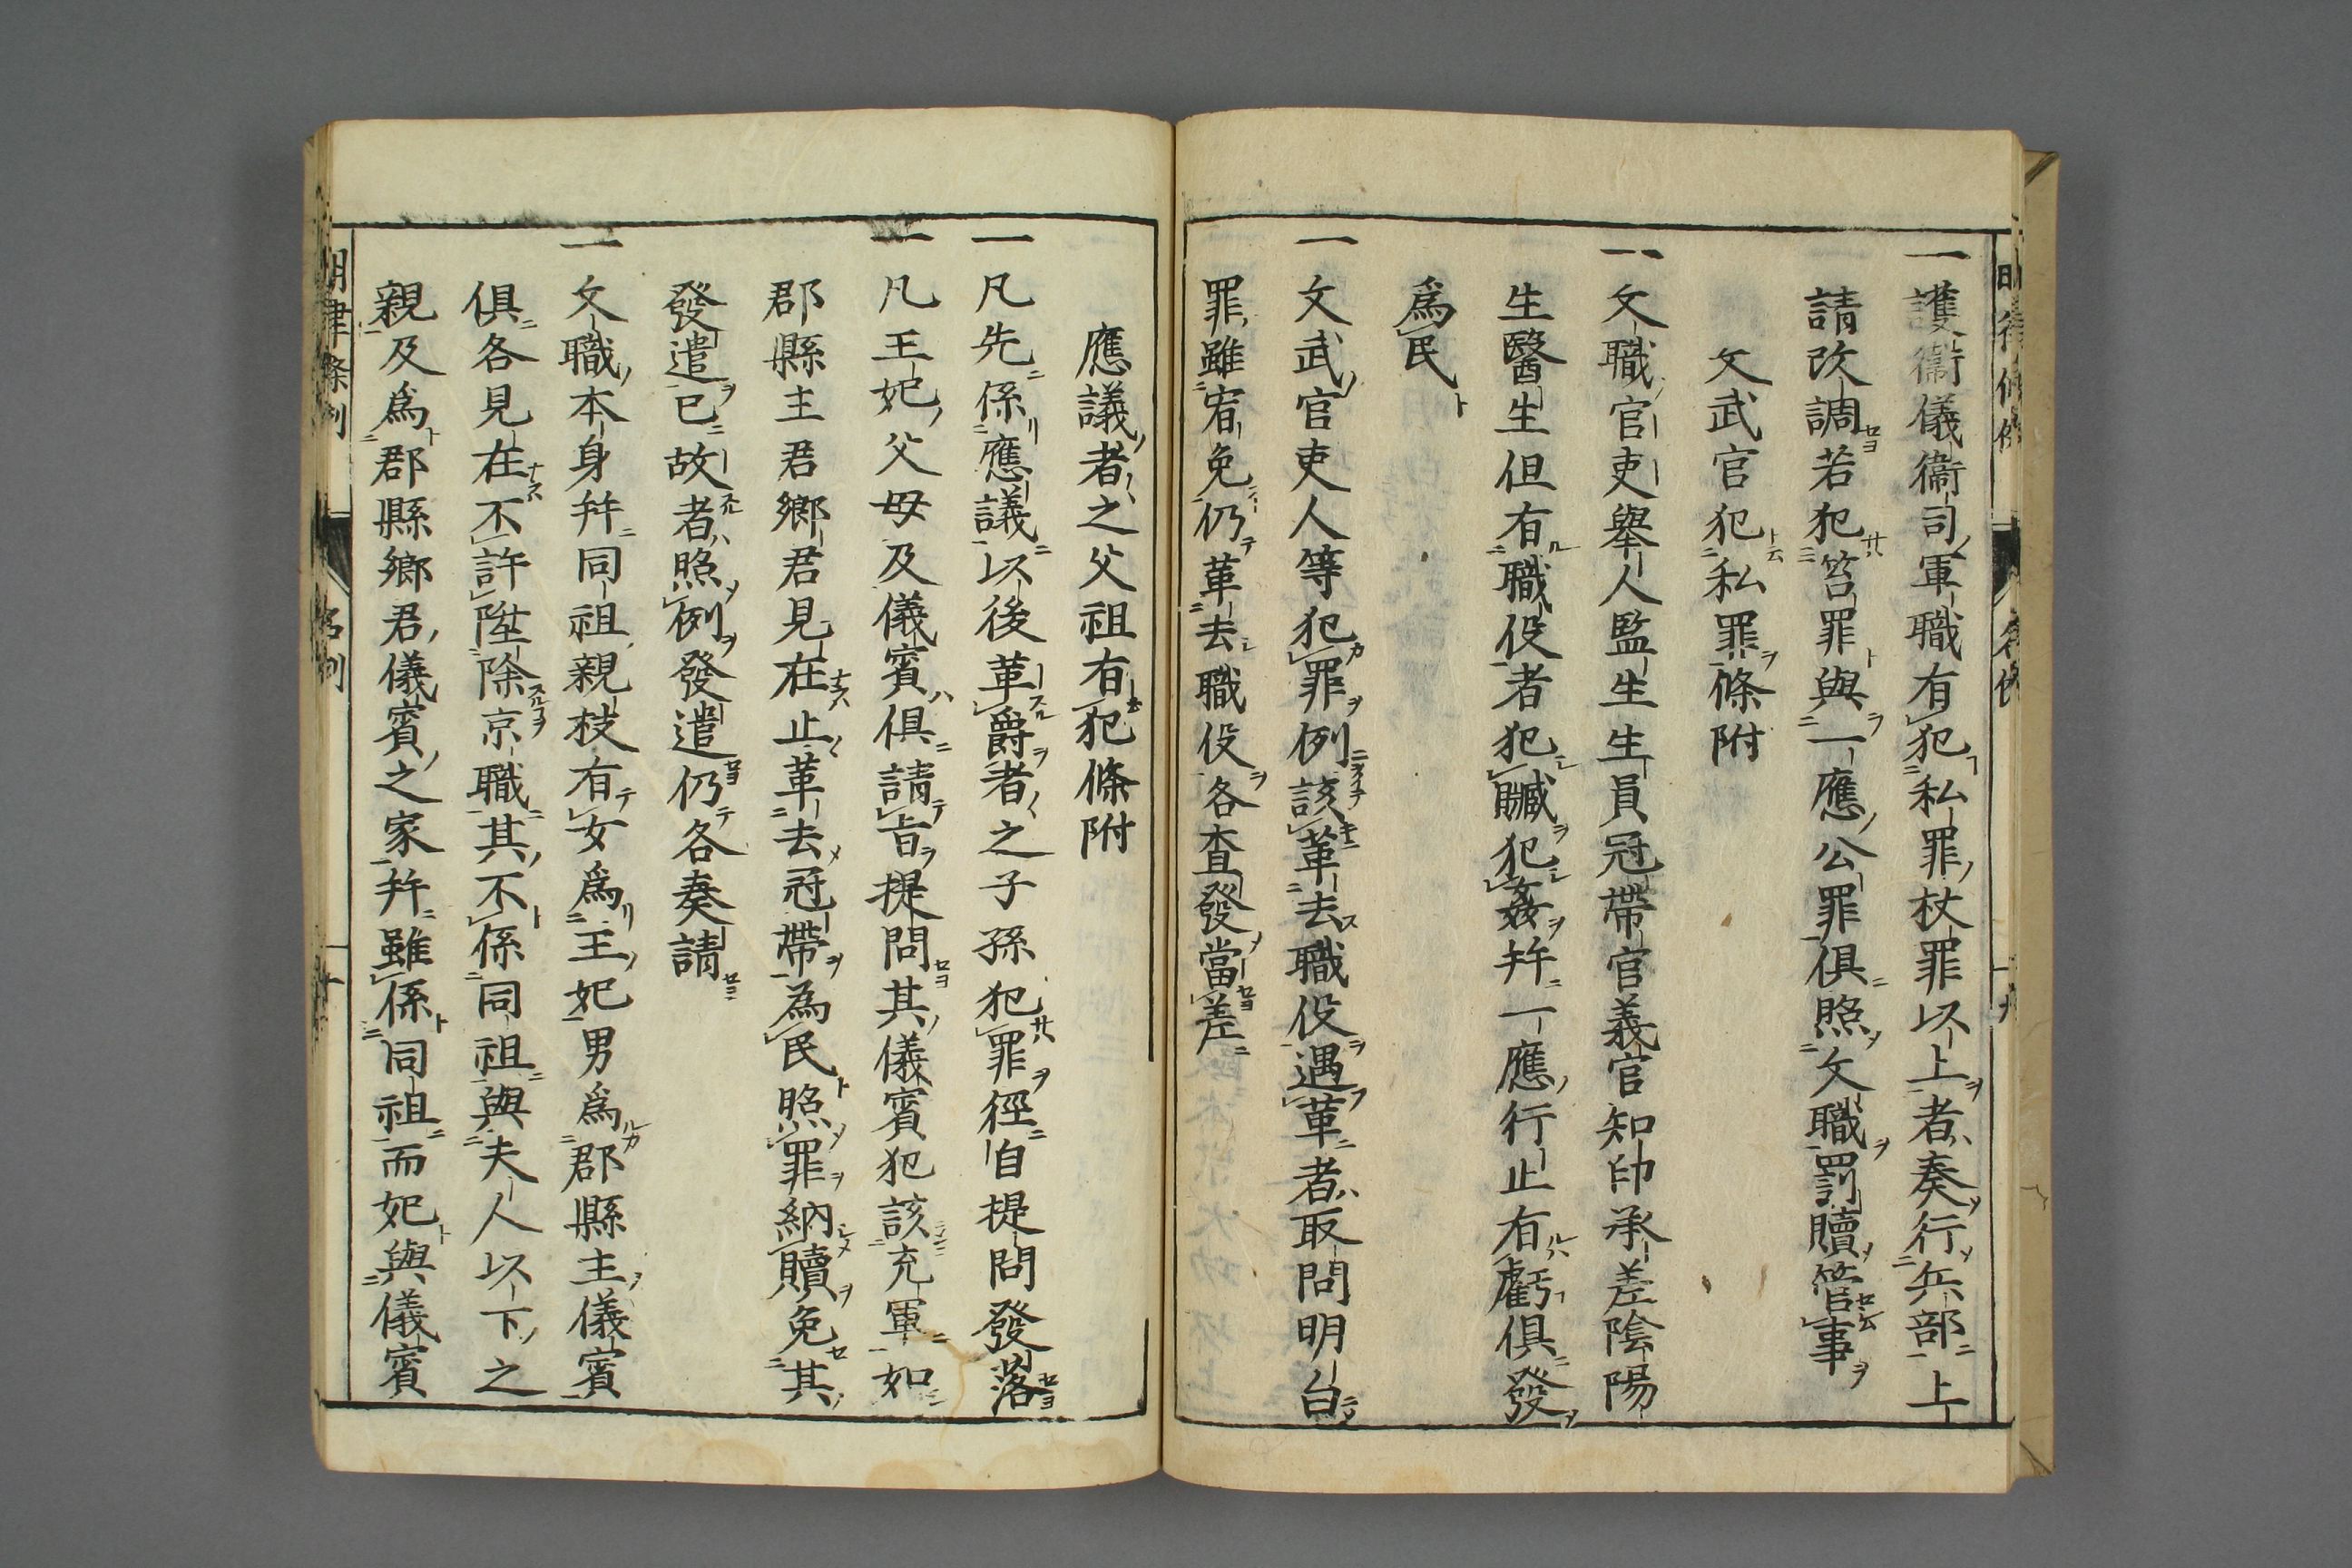 一護衞儀衞司軍職有犯私罪杖罪以上者奏行兵部上
請改調若犯笞罪與一應公罪俱照文職罰贖管事
文武官犯私罪條附
一文職官吏舉人監生生員冠帶官義官知印承差陰陽
生醫生但有職役者犯贓犯姦幷一應行止有虧俱發
爲民
一文武官吏人等犯罪例該革去職役遇革者取問明白
罪雖宥免仍革去職役各查發當差
應議者之父祖有犯條附
一凡先係應議以後革爵者之子孫犯罪徑自提問發落
一凡王妃父母及儀賓俱請旨提問其儀賓犯該充軍如
郡縣主君鄉君見在止革去冠帶為民照罪納贖免其
發遣已故者照例發遣仍各奏請
一文職本身幷同祖親枝有女爲王妃男爲郡縣主儀賓
俱各見在不許陞除京職其不係同祖與夫人以下之
親及爲郡縣鄉君儀賓之家幷雖係同祖而妃與儀賓